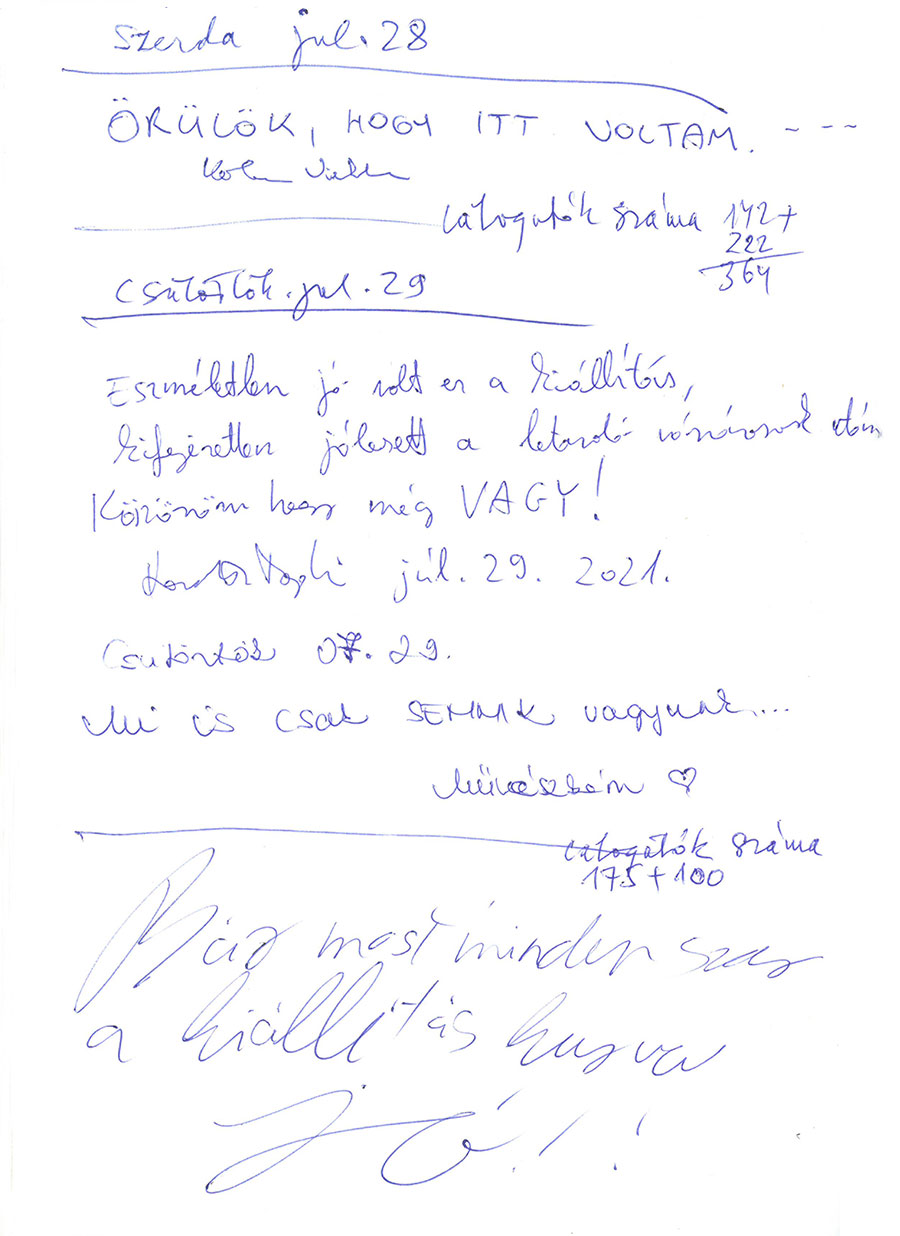 Szerda jul. 28
ÖRÜLÖK, HOGY ITT VOLTAM. - - -
Látogatók száma 142+
222
364
Csütörtök. jul. 29
Eszméletlen jó volt ez a kiállítás,
kifejezetten jólesett a letarolt után
Köszönöm hogy még VAGY!
júl. 29. 2021.
Csütörtök 07.29.
Mi is csak SEMMIK vagyunk....
Művészbán ♡
Látogatók száma
175+100
Bár most minden szar
a kiállítás kurva
JÓ!!!